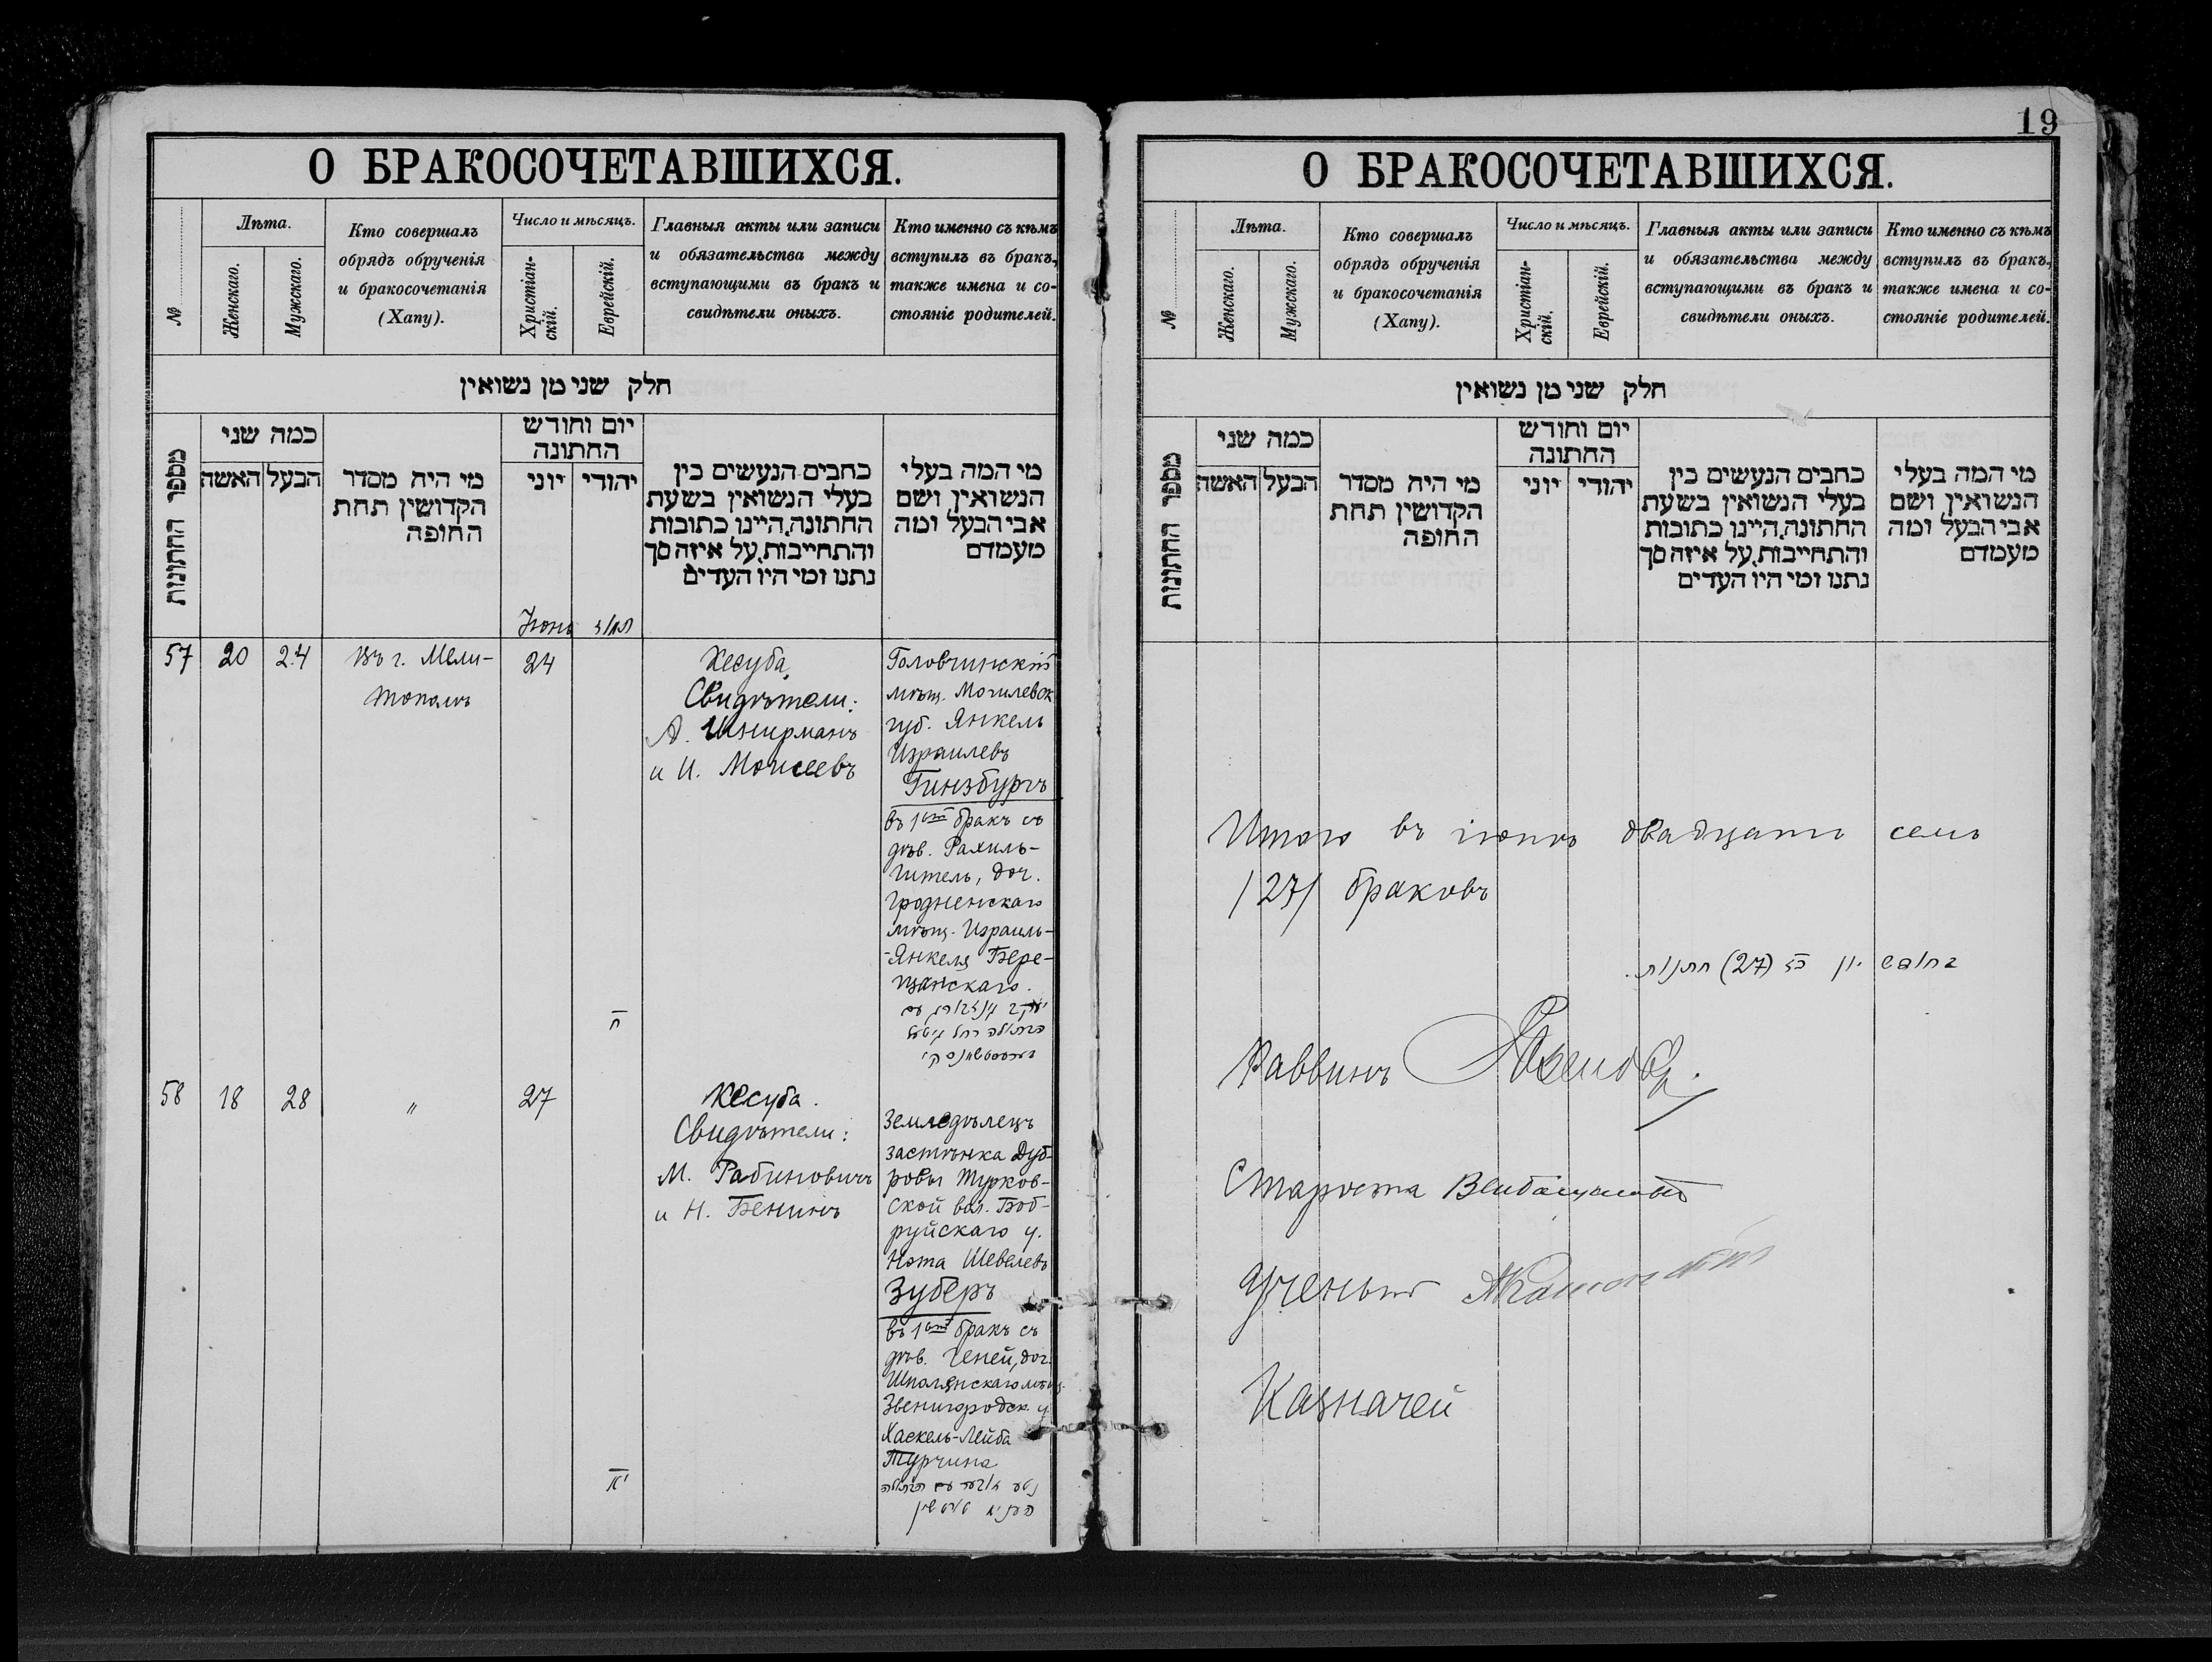 19
О БРАКОСОЧЕТАВШИХСЯ.
№
Лѣта.
Женскаго.
Мужскаго.
Кто совершалъ
обрядъ обрученія
и бракосочетанія
(Хапу).
Число и мѣсяцъ.
Христіан-
скій.
Еврейскій.
Главныя акты или записи
и обязательства между
вступающими въ бракъ и
свидѣтели оныхъ.
Кто именно съ кѣмъ
вступилъ въ бракъ,
также имена и со-
стояніе родителей.
חלק שני מן נשואין
מספר החתונות
כמה שני
האשה
הבעל
מי היה מסדר
הקדושין תחת
החופה
יום וחודש
החתונה
יוני
יהודי
כתבים הנעשים בין
בעלי הנשואין בשעת
החתונה, היינו כתובות
והתחייבות, על איזה סך
נתנו ומי היו העדים
מי המה בעלי
הנשואין ושם
אבי הבעל ומה
מעמדם
Іюнь
תמוז
57
20
24
Въ г. Мели-
тополѣ
24
ח
Кесуба,
Свидѣтели:
А. Шнирманъ
и И. Моисеевъ
Головчинскій
мѣщ. Могилевск
губ. Янкель
Израилевъ
Гинзбургъ
въ 1ый бракъ съ
дѣв. Рахиль-
Гитель, доч.
Гродненскаго
мѣщ. Израиль-
-Янкеля Бере-
щанскаго.
יעקב גינזבורג עם
הבתולה רחל גיטל
58
18
28
"
27
יא
Кесуба.
Свидѣтели:
М. Рабиновичъ
и Н. Бенинъ
Земледѣлецъ
застѣнка Дуб-
ровы Турков-
ской вол. Боб-
руйскаго у.
Нота Шевелевъ
Зуберъ
въ 1ый бракъ съ
дѣв. Геней, доч.
Шполянскаго мѣщ.
Звенигородск. у.
Хаскель-Лейба
Турчина
נטע זובער עם הבתולה
О БРАКОСОЧЕТАВШИХСЯ.
№
Лѣта.
Женскаго.
Мужскаго.
Кто совершалъ
обрядъ обрученія
и бракосочетанія
(Хапу).
Число и мѣсяцъ.
Христіан-
скій.
Еврейскій.
Главныя акты или записи
и обязательства между
вступающими въ бракъ и
свидѣтели оныхъ.
Кто именно съ кѣмъ
вступилъ въ бракъ,
также имена и со-
стояніе родителей.
חלק שני מן נשואין
מספר החתונות
כמה שני
האשה
הבעל
מי היה מסדר
הקדושין תחת
החופה
יום וחודש
החתונה
יוני
יהודי
כתבים הנעשים בין
בעלי הנשואין בשעת
החתונה, היינו כתובות
והתחייבות, על איזה סך
נתנו ומי היו העדים
מי המה בעלי
הנשואין ושם
אבי הבעל ומה
מעמדם
Итого въ іюнѣ двадцать семь
/27/ браковъ
בחודש יון כז (27) חתונות.
Раввинъ
Староста
Ученый
Казначей